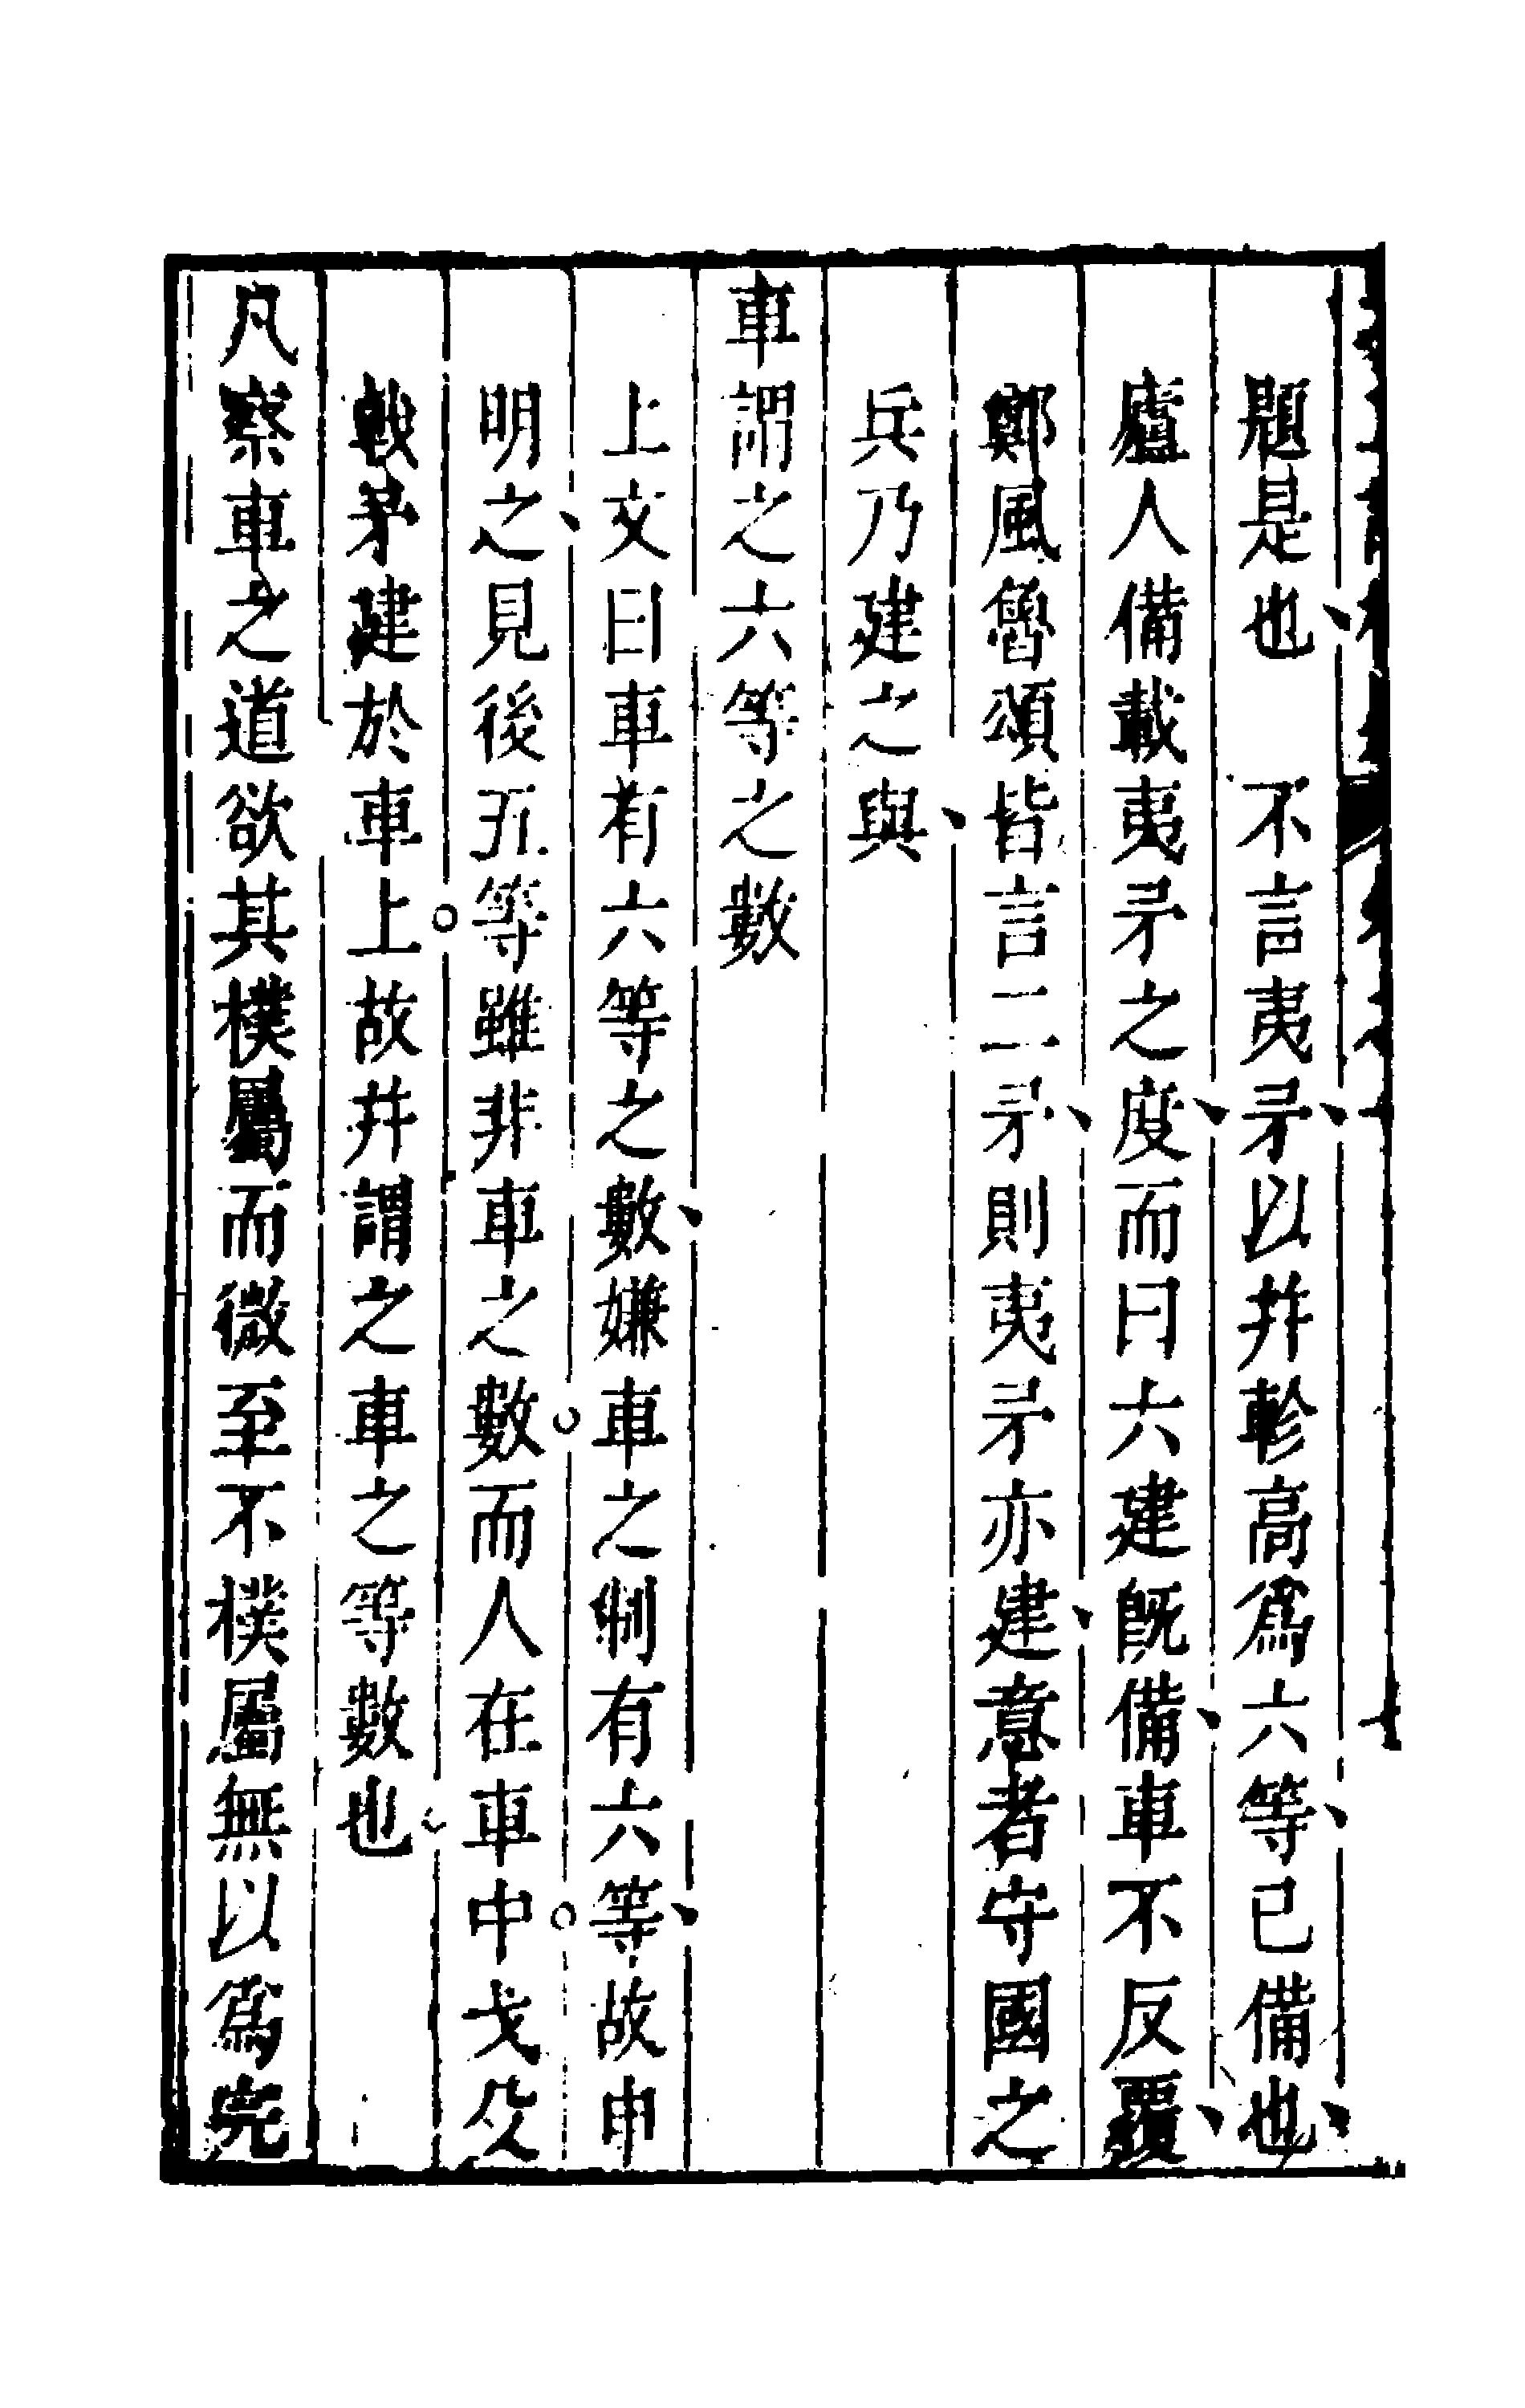 題是也　不言夷矛以并軫高爲六等已備也
廬人備載夷矛之度而曰六建旣備車不反覆
鄭風魯頌皆言二矛則夷矛亦建意者守國之
兵乃建之與
車謂之六等之數
上文曰車有六等之數嫌車之制有六等故申
明之見後五等雖非車之數而人在車中戈殳
戟矛建於車上故并謂之車之等數也
凡察車之道欲其樸屬而微至不樸屬無以爲完